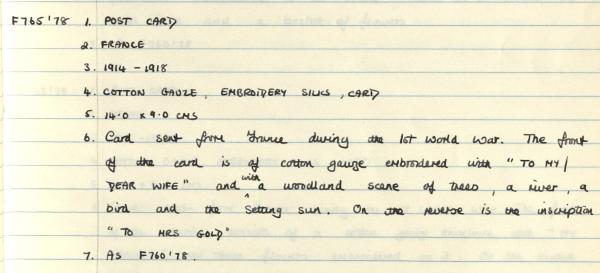 F765'78 1. POST CARD
2. FRANCE
3. 1914 - 1918
4. COTTON GAUZE, EMBROIDERY SILKS, CARD
5. 14.0 x 9.0 CMS
6. Card sent from France during the 1st World War. The front
of the card is of cotton gauze embroidered with "TO MY/
DEAR WIFE" and with a woodland scene of trees, a river, a
bird and the setting sun. On the reverse is the inscription
"TO MRS GOLD"
7. AS F760'78.